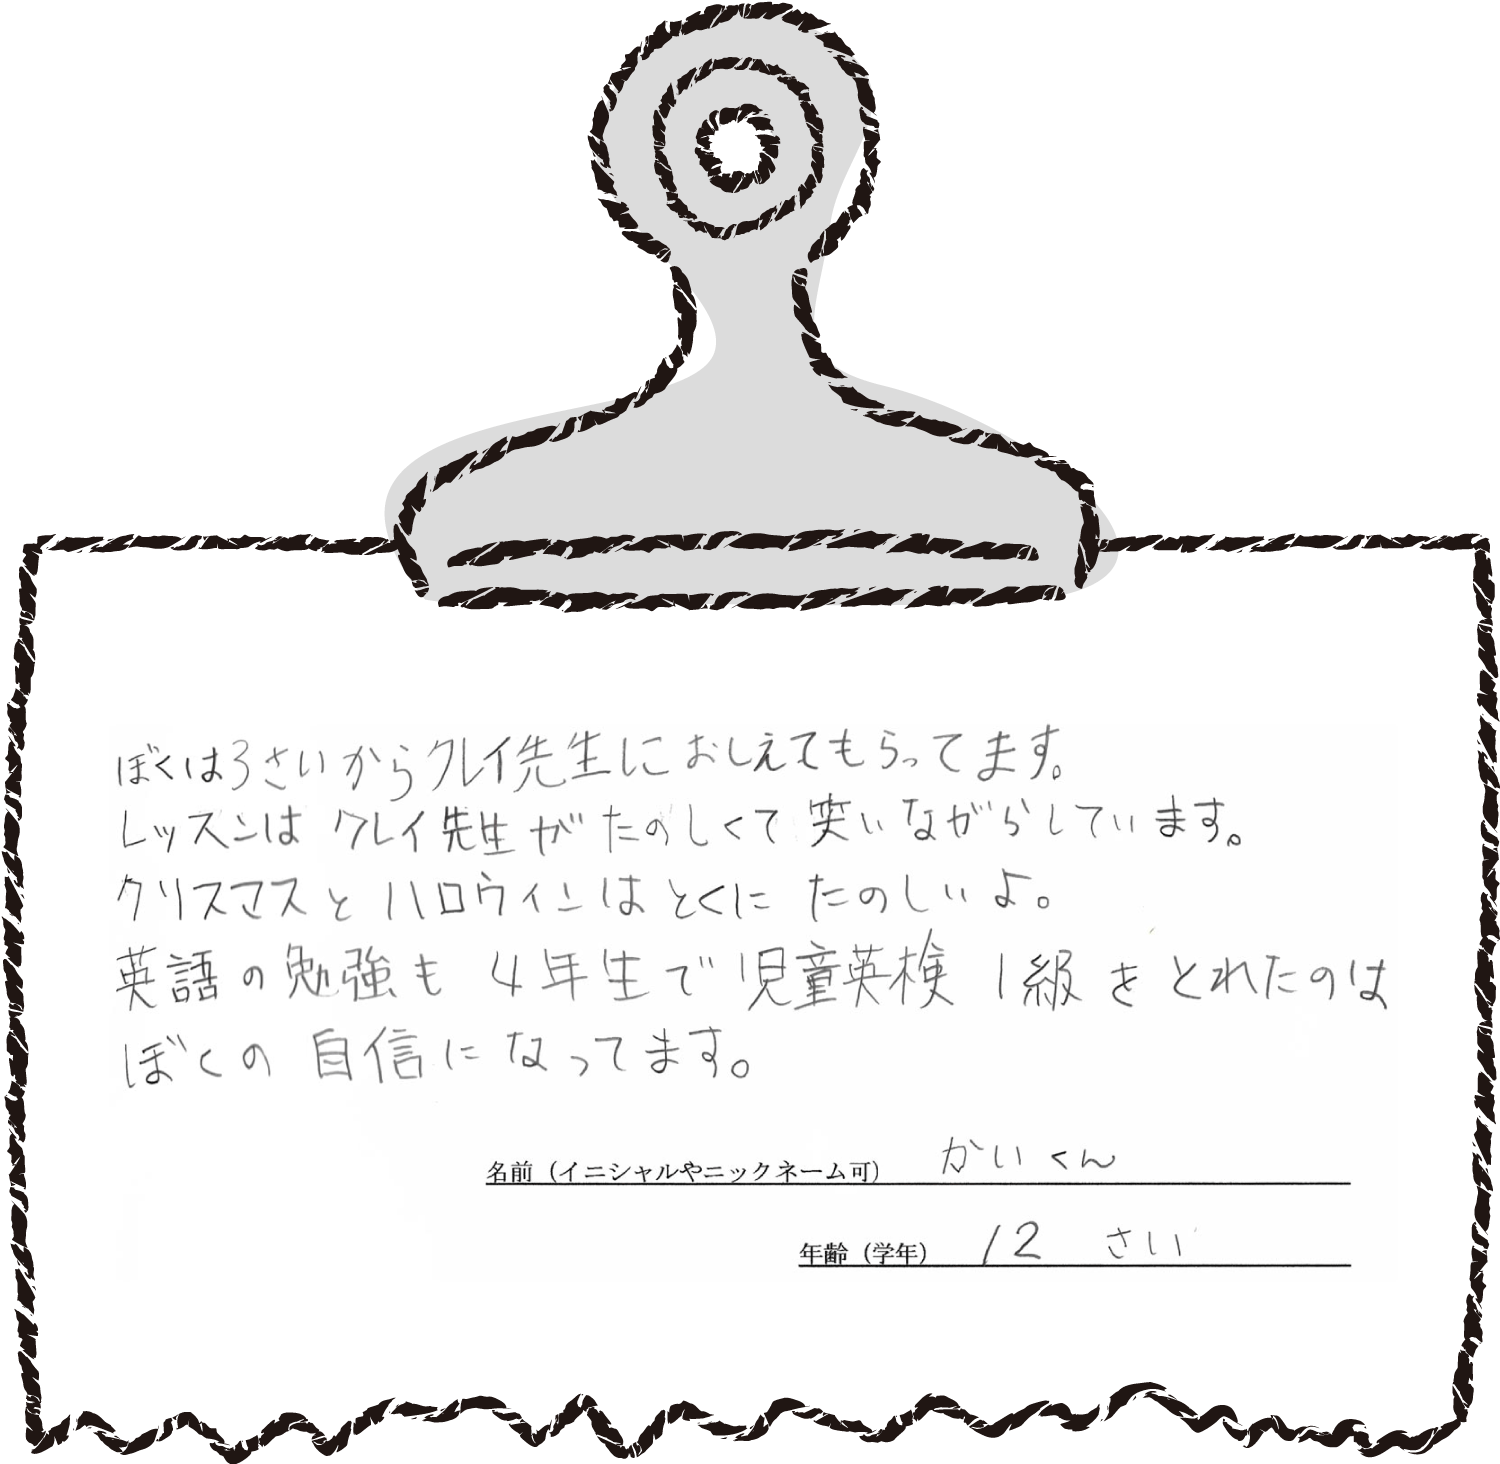 ぼくは3さいからクレイ先生におしえてもらってます。
レッスンは クレイ先生が たのしくて 笑いながらしています。
クリスマスと ハロウィンは とくに たのしいよ。
英語の勉強も 4年生で 児童英検 1級をとれたのは
ぼくの 自信になってます。
名前（イニシャルやニックネーム可） かいくん
年齢（学年） 12 さい